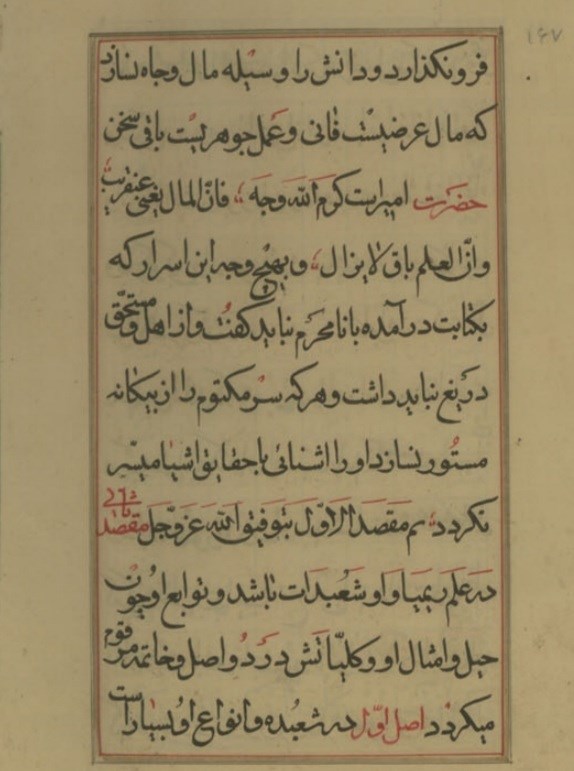 ۱۴۷
فرونکذارد و دانش را وسیله مال و جاه نسازد
که مال عرضیست فانی و عمل جوهریست باقی سخن
حضرت امیرست کرم الله وجه فانّ المال یفنی عنقریب
وانّ العلم باق لا یزال و بهیچ وجه این اسرار که
بکتابت درآمده با نامحرم نباید کفت و از اهل و مستحق
دریغ نباید داشت و هرکه سر مکتوم را از بیکانه
مستور نسازد او را اشنائی با حقایق اشیا میسر
نکردد تم مقصد الاوّل بتوفیق الله عزّ وجل مقصد ثانی
در علم ریمیا و او شعبدات باشد و توابع او چون
حیل و امثال او و کلیّاتش در دو اصل و خاتمه مرقوم
میکردد اصل اوّل در شعبده و انواع او بسیار است